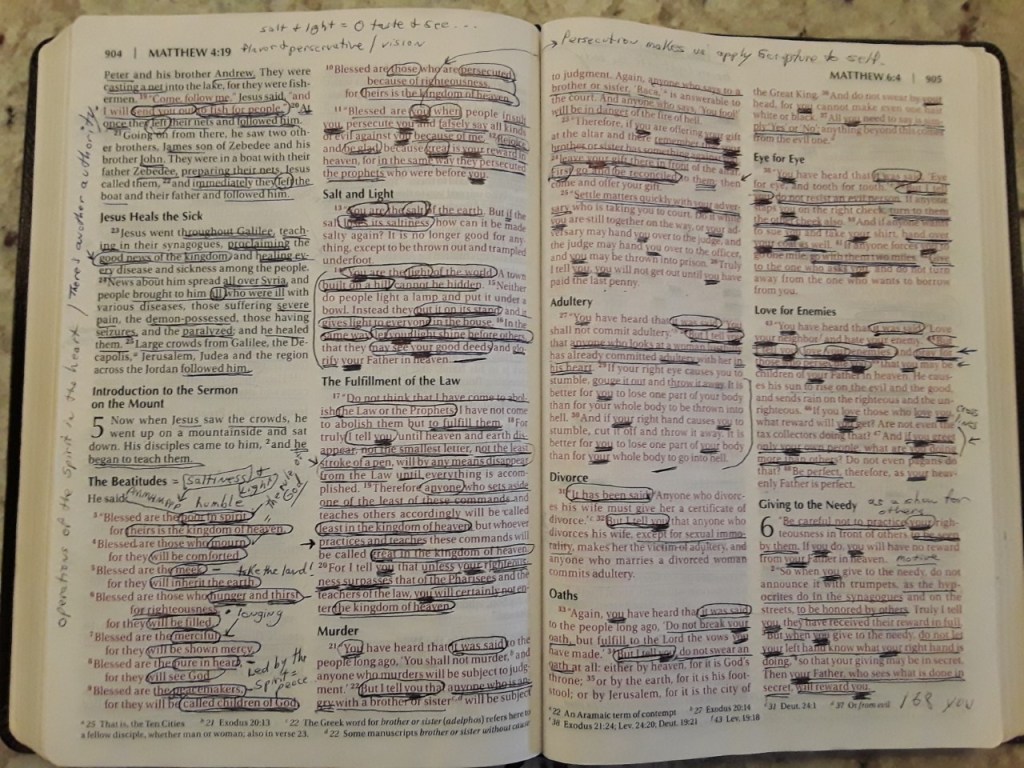 salt + light = taste + see...
904 | MATTHEW 4:19
flavor + perservative / vision
Operations of the Spirit in the heart / Theres another authority.
Peter and his brother Andrew. They were
casting a net into the lake, for they were fish-
ermen. 19 "Come, follow me," Jesus said, "and
I will send you out to fish for people." 20 At
once they left their nets and followed him.
21 Going on from there, he saw two oth-
er brothers, James son of Zebedee and his
brother John. They were in a boat with their
father Zebedee, preparing their nets. Jesus
called them, 22 and immediately they left the
boat and their father and followed him.
Jesus Heals the Sick
23 Jesus went throughout Galilee, teach-
ing in their synagogues, proclaiming the
good news of the kingdom, and healing ev-
ery disease and sickness among the people.
24 News about him spread all over Syria, and
people brought to him all who were ill with
various diseases, those suffering severe
pain, the demon-possessed, those having
seizures, and the paralyzed; and he healed
them. 25 Large crowds from Galilee, the De-
capolis, a Jerusalem, Judea and the region
across the Jordan followed him.
Introduction to the Sermon
on the Mount
5 Now when Jesus saw the crowds, he
went up on a mountainside and sat
down. His disciples came to him, 2 and he
began to teach them.
The Beatitudes = saltiness + light
He said:
humble
3 "Blessed are the poor in spirit,
for theirs is the kingdom of heaven.
4 Blessed are those who mourn,
for they will be comforted.
5 Blessed are the meek, – take the land!
for they will inherit the earth.
6 Blessed are those who hunger and thirst
for righteousness,
longing
for they will be filled.
7 Blessed are the merciful,
for they will be shown mercy.
8 Blessed are the pure in heart, – Led by the
for they will see God. Spirit =
9 Blessed are the peacemakers, peace
for they will be called children of God.
10 Blessed are those who are persecuted
because of righteousness,
for theirs is the kingdom of heaven.
11 "Blessed are you when people insult
you, persecute you and falsely say all kinds
of evil against you because of me. 12 Rejoice
and be glad, because great is your reward in
heaven, for in the same way they persecuted
the prophets who were before you.
Salt and Light
13 "You are the salt of the earth. But if the
salt loses its saltiness, how can it be made
salty again? It is no longer good for any-
thing, except to be thrown out and trampled
underfoot.
14 "You are the light of the world. A town
built on a hill cannot be hidden. 15 Neither
do people light a lamp and put it under a
bowl. Instead they put it on its stand, and it
gives light to everyone in the house. 16 In the
same way, let your light shine before others,
that they may see your good deeds and glo-
rify your Father in heaven.
The Fulfillment of the Law
17 "Do not think that I have come to abol-
ish the Law or the Prophets; I have not come
to abolish them but to fulfill them. 18 For
truly I tell you, until heaven and earth dis-
appear, not the smallest letter, not the least
stroke of a pen, will by any means disappear
from the Law until everything is accom-
plished. 19 Therefore anyone who sets aside
one of the least of these commands and
teaches others accordingly will be called
least in the kingdom of heaven, but whoever
practices and teaches these commands will
be called great in the kingdom of heaven.
20 For I tell you that unless your righteous-
ness surpasses that of the Pharisees and the
teachers of the law, you will certainly not en-
ter the kingdom of heaven.
Murder
21 "You have heard that it was said to the
people long ago, 'You shall not murder, b and
anyone who murders will be subject to judg-
ment.' 22 But I tell you that anyone who is an-
gry with a brother or sister will be subject
a 25 That is, the Ten Cities b 21 Exodus 20:13 c 22 The Greek word for brother or sister (adelphos) refers here to
a fellow disciple, whether man or woman; also in verse 23. d 22 Some manuscripts brother or sister without cause
Persecution makes us apply Scripture to self.
MATTHEW 6:4 | 905
to judgment. Again, anyone who says to a
brother or sister, 'Raca,' is answerable to
the court. And anyone who says, 'You fool!'
will be in danger of the fire of hell.
23 "Therefore, if you are offering your gift
at the altar and there remember that your
brother or sister has something against you,
24 leave your gift there in front of the altar.
First go and be reconciled to them; then
come and offer your gift.
25 "Settle matters quickly with your adver-
sary who is taking you to court. Do it while
you are still together on the way, or your ad-
versary may hand you over to the judge, and
the judge may hand you over to the officer,
and you may be thrown into prison. 26 Truly
I tell you, you will not get out until you have
paid the last penny.
Adultery
27 "You have heard that it was said, 'You
shall not commit adultery.' 28 But I tell you
that anyone who looks at a woman lustfully
has already committed adultery with her in
his heart. 29 If your right eye causes you to
stumble, gouge it out and throw it away. It is
better for you to lose one part of your body
than for your whole body to be thrown into
hell. 30 And if your right hand causes you to
stumble, cut it off and throw it away. It is
better for you to lose one part of your body
than for your whole body to go into hell.
Divorce
31 "It has been said, 'Anyone who divorc-
es his wife must give her a certificate of
divorce.' 32 But I tell you that anyone who
divorces his wife, except for sexual immo-
rality, makes her the victim of adultery, and
anyone who marries a divorced woman
commits adultery.
Oaths
33 "Again, you have heard that it was said
to the people long ago, 'Do not break your
oath, but fulfill to the Lord the vows you
have made.' 34 But I tell you, do not swear an
oath at all: either by heaven, for it is God's
throne; 35 or by the earth, for it is his foot-
stool; or by Jerusalem, for it is the city of
the Great King. 36 And do not swear by your
head, for you cannot make even one hair
white or black. 37 All you need to say is sim-
ply 'Yes' or 'No'; anything beyond this comes
from the evil one.
Eye for Eye
38 "You have heard that it was said, 'Eye
for eye, and tooth for tooth.' 39 But I tell you,
do not resist an evil person. If anyone slaps
you on the right cheek, turn to them
the other cheek also. 40 And if anyone wants
to sue you and take your shirt, hand over
your coat as well. 41 If anyone forces you to
go one mile, go with them two miles. 42 Give
to the one who asks you, and do not turn
away from the one who wants to borrow
from you.
Love for Enemies
43 "You have heard that it was said, 'Love
your neighbor and hate your enemy.' 44 But
I tell you, love your enemies and pray for
those who persecute you, 45 that you may be
children of your Father in heaven. He caus-
es his sun to rise on the evil and the good,
and sends rain on the righteous and the un-
righteous. 46 If you love those who love you,
what reward will you get? Are not even the
tax collectors doing that? 47 And if you greet
only your own people, what are you doing
more than others? Do not even pagans do
that? 48 Be perfect, therefore, as your heav-
enly Father is perfect.
Giving to the Needy as a show for
others
6 "Be careful not to practice your righ-
teousness in front of others to be seen
by them. If you do, you will have no reward
from your Father in heaven. motive
2 "So when you give to the needy, do not
announce it with trumpets, as the hyp-
ocrites do in the synagogues and on the
streets, to be honored by others. Truly I tell
you, they have received their reward in full.
3 But when you give to the needy, do not let
your left hand know what your right hand is
doing, 4 so that your giving may be in secret.
Then your Father, who sees what is done in
secret, will reward you.
168 you
d 22 An Aramaic term of contempt e 27 Exodus 20:14 f 31 Deut. 24:1 g 37 Or from evil
h 38 Exodus 21:24; Lev. 24:20; Deut. 19:21 i 43 Lev. 19:18